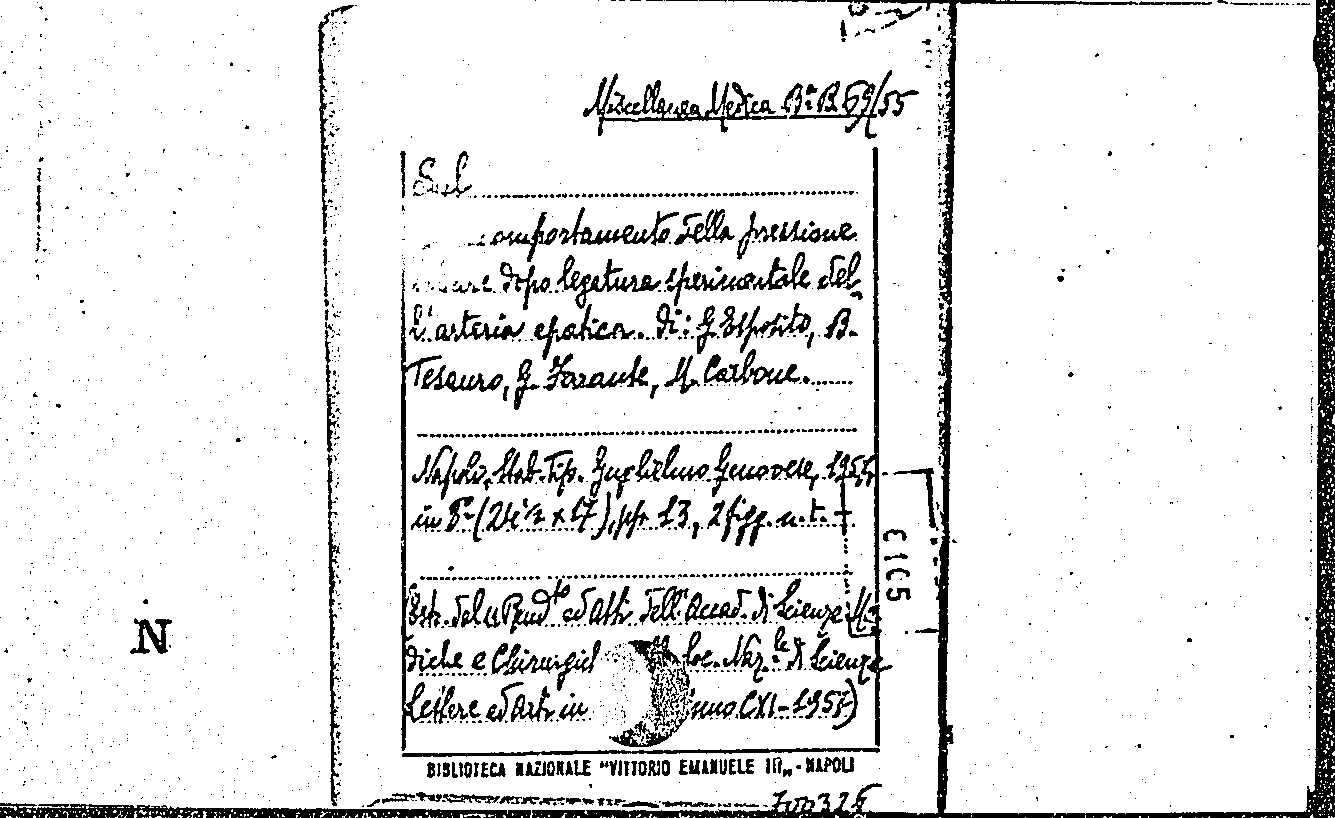 Miscellanea Medica Bª B. 59/55
Sul
comportamento della pressione
dopo legatura sperimentale del
l'arteria epatica. Di: G. Esposito, B.
Tesauro, G. Zarante, M. Carbone.
Napoli, Stab. Tip. Guglielmo Genovese, 1957,
in 8° (24½ x 17), pp. 13, 2 figg. n. t. –
(Estr. del "Rend.to ed Atti dell'Accad. di Scienze Me
diche e Chirurgich Soc. Naz.le di Scienze
Lettere ed Arti in nno CXI - 1957)
E1C5
N
BIBLIOTECA NAZIONALE "VITTORIO EMANUELE III„ - NAPOLI